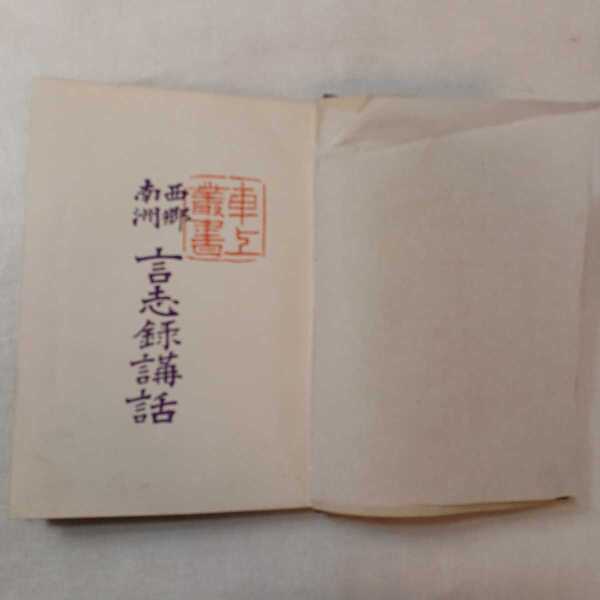 車上
叢書
西郷
南洲
言志録講話